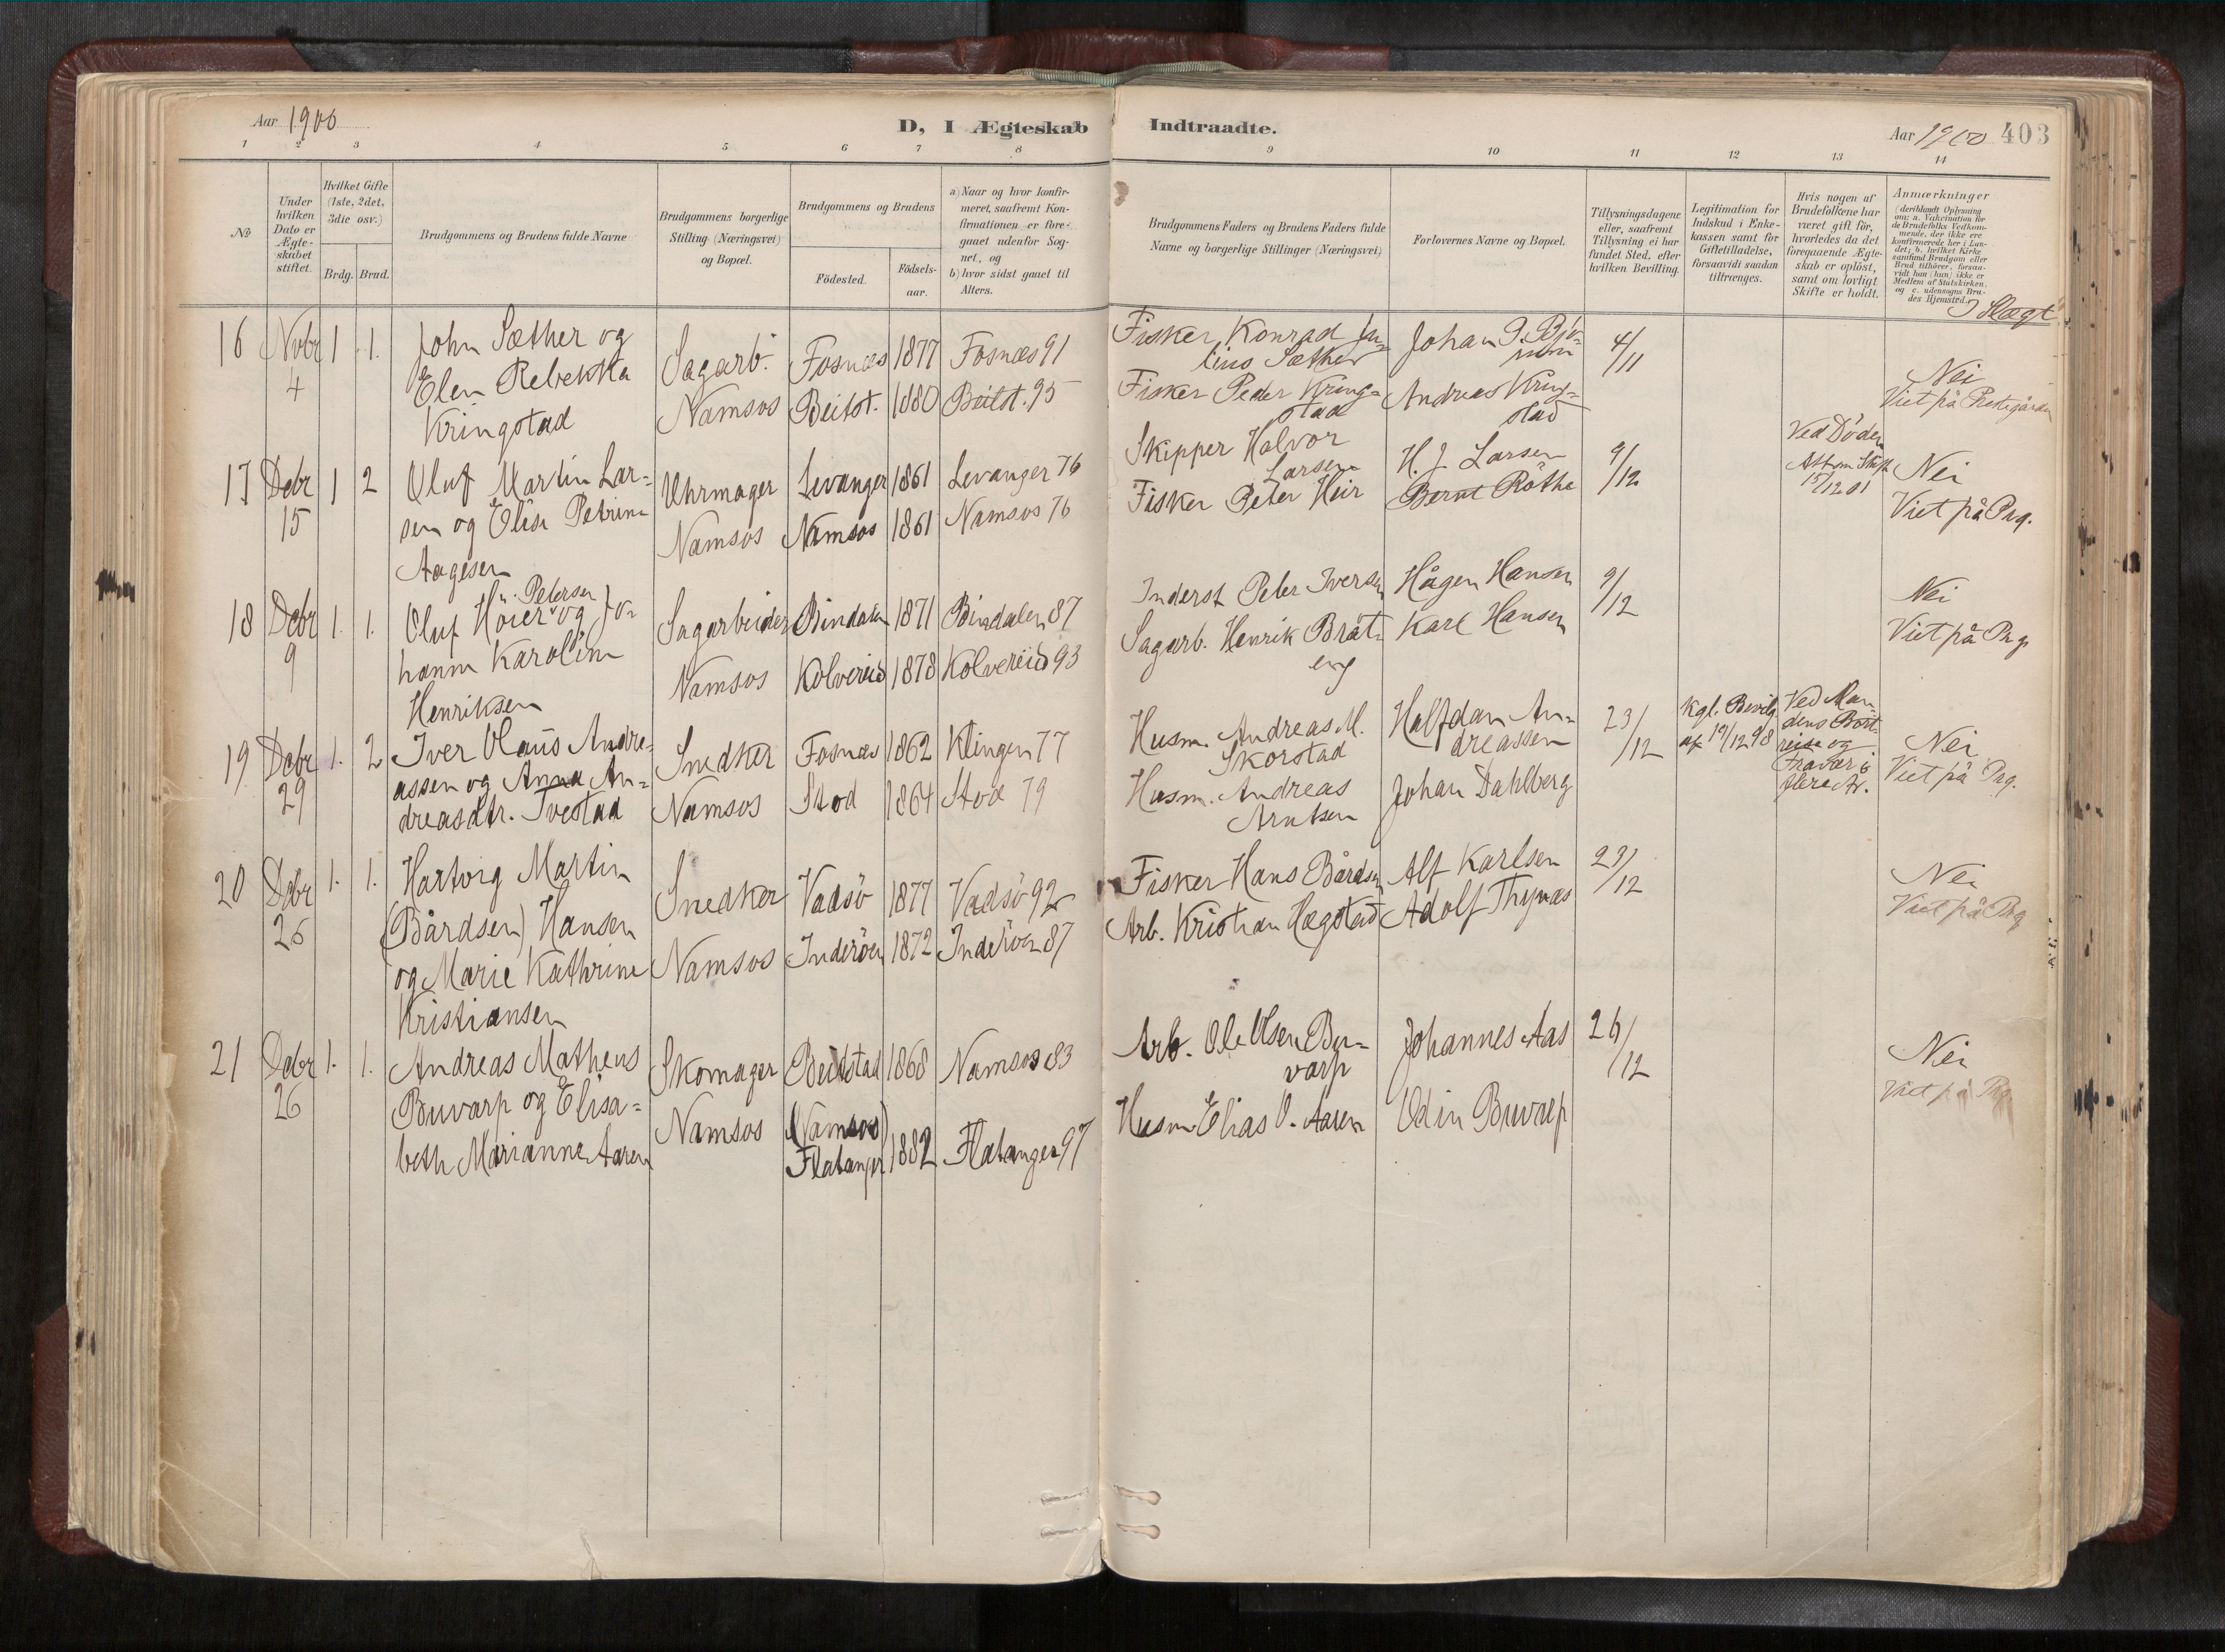 Aar 1900
D, I Ægteskab Indtraadte.
Aar 1900 403
1 2 3 4 5 6 7 8 9 10 11 12 13 14
No
Under hvilken Dato er Ægteskabet stiftet.
Hvilket Gifte (1ste, 2det, 3die osv.)
Brdg. Brud.
Brudgommens og Brudens fulde Navne
Brudgommens borgerlige Stilling (Næringsvei) og Bopæl.
Brudgommens og Brudens
Födested.
Födsels-aar.
a) Naar og hvor konfir-
meret, saafremt Kon-
firmationen er fore-
gaaet udenfor Sog-
net, og
b) hvor sidst gaaet til
Alters.
Brudgommens Faders og Brudens Faders fulde
Navne og borgerlige Stillinger (Næringsvei)
Forlovernes Navne og Bopæl.
Tillysningsdagene
eller, saafremt
Tillysning ei har
fundet Sted, efter
hvilken Bevilling.
Legitimation for
Indskud i Enke-
kassen samt for
Giftetilladelse,
forsaavidt saadan
tiltrænges.
Hvis nogen af
Brudefolkene har
været gift för,
hvorledes da det
foregaaende Ægte-
skab er oplöst,
samt om lovligt
Skifte er holdt.
Anmærkninger
(deriblandt Oplysning
om: a. Vakcination for
de Brudefolks Vedkom-
mende, der ikke ere
konfirmerede her i Lan-
det; b. hvilket Kirke
samfund Brudgom eller
Brud tilhörer, forsaa-
vidt han (hun) ikke er
Medlem af Statskirken,
og c. udensogns Bru-
des Hjemsted.)
I Slægt
16 Nvbr 4 1 1.
John Sæther og
Elen Rebekka
Kringstad
Sagarb.
Namsos
Fosnæs 1877 Fosnæs 91
Beitst. 1880 Beitst. 95
Fisker Konrad Ju-
lius Sæther
Fisker Peder Kring=
stad
Johan P.
Andreas Kring=
stad
4/11
Nei
Viet på Prestegården
17 Debr 15 1 2
Oluf Martin Lar=
sen og Elise Petrine
Aagesen
Uhrmager
Namsos
Levanger 1861 Levanger 76
Namsos 1861 Namsos 76
Skipper Halvor
Larsen
Fisker Peter Heir
H. J. Larsen
Bernt Röthe
9/12
Ved Döden
Att om Skifte
15/12 01
Nei
Viet på Prg.
18 Debr 9 1. 1.
Petersen
Oluf Höier og Jo-
hanne Karoline
Henriksen
Sagarbeider
Namsos
Bindalen 1871 Bindalen 87
Kolvereid 1878 Kolvereid 93
Inderst Peter Iversen
Sagarb. Henrik Bråt-
eng
Hågen Hansen
Karl Hansen
9/12
Nei
Viet på Prg
19 Debr 29 1. 2
Iver Olaus Andre=
assen og Anna An=
dreasdtr. Tvestad
Snedker
Namsos
Fosnæs 1862 Klingen 77
Stod 1864 Stod 79
Husm. Andreas M.
Skorstad
Husm. Andreas
Arntsen
Halfdan An=
dreassen
Johan Dahlberg
23/12
Kgl. Bevilg
af 19/12 98
Ved Man-
dens Bort-
reise og
Fravær i
flere År.
Nei
Viet på Prg.
20 Debr 26 1. 1.
Hartvig Martin
(Bårdsen) Hansen
og Marie Kathrine
Kristiansen
Snedker
Namsos
Vadsö 1877 Vadsö 92
Inderöen 1872 Inderöen 87
Fisker Hans Bårdsen
Arb. Kristian Hægstad
Alf Karlsen
Adolf Thynæs
23/12
Nei
Viet på Prg
21 Debr 26 1. 1.
Andreas Matheus
Buvarp og Elisa=
beth Marianne Aaren
Skomager
Namsos
Beitstad 1868 Namsos 83
(Namsos)
Flatanger 1882 Flatanger 97
Arb. Ole Olsen Bu-
varp
Husm Elias O. Aaren
Johannes Aas
Odin Buvarp
26/12
Nei
Viet på Prg